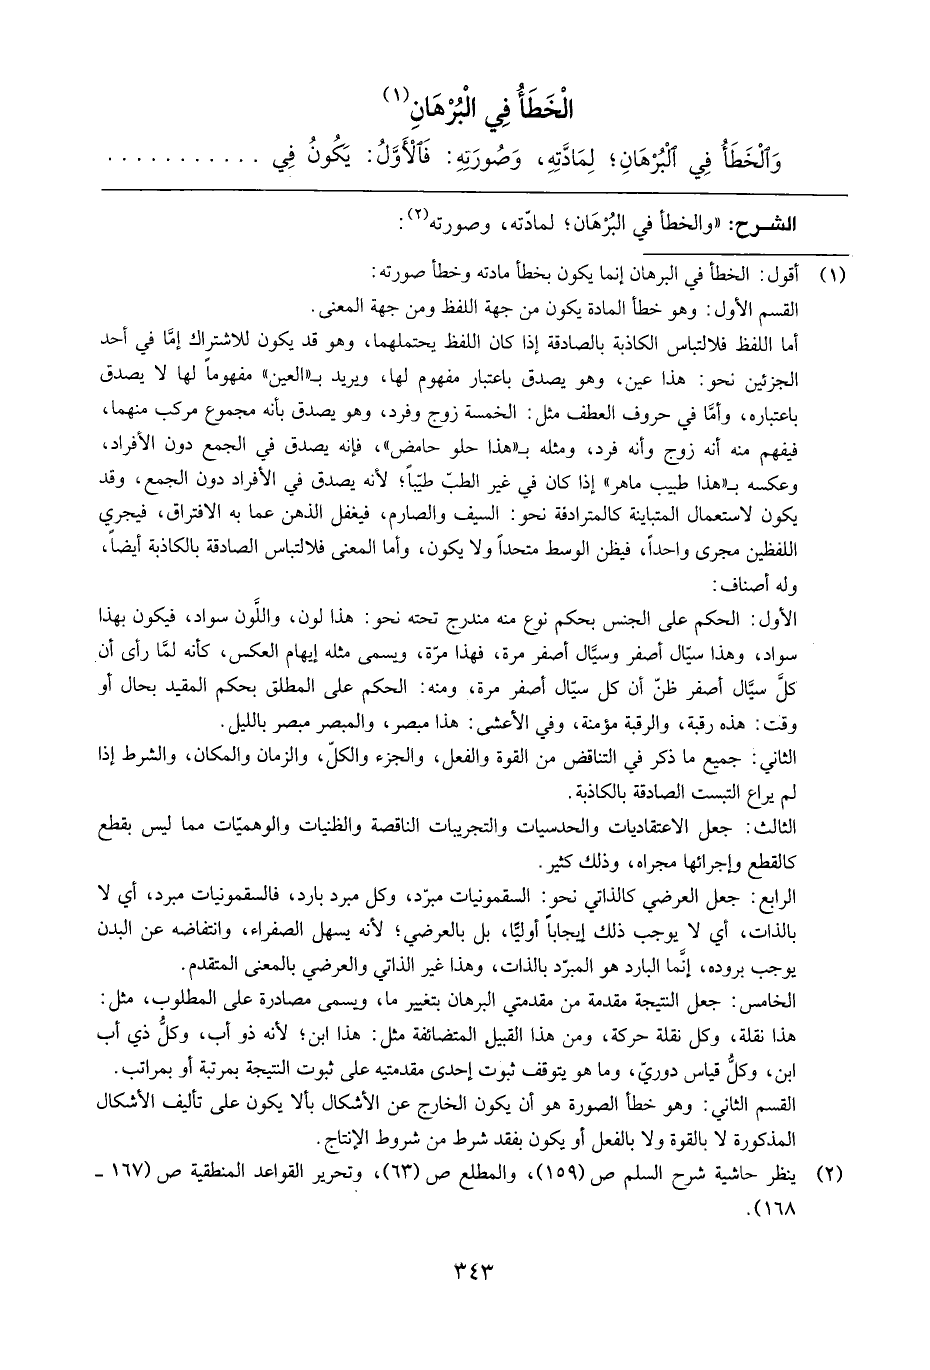 الْخَطَأُ فِي الْبُرْهَانِ(١)
وَالْخَطَأُ فِي الْبُرْهَانِ؛ لِمَادَّتِهِ، وَصُورَتِهِ: فَالْأَوَّلُ: يَكُونُ فِي ...........
الشرح: «والخطأ في البُرْهَان؛ لمادّته، وصورته(٢):
(١) أقول: الخطأ في البرهان إنما يكون بخطأ مادته وخطأ صورته:
القسم الأول: وهو خطأ المادة يكون من جهة اللفظ ومن جهة المعنى.
أما اللفظ فلالتباس الكاذبة بالصادقة إذا كان اللفظ يحتملهما، وهو قد يكون للاشتراك إمَّا في أحد
الجزئين نحو: هذا عين، وهو يصدق باعتبار مفهوم لها، ويريد بـ«العين» مفهوماً لها لا يصدق
باعتباره، وأمَّا في حروف العطف مثل: الخمسة زوج وفرد، وهو يصدق بأنه مجموع مركب منهما،
فيفهم منه أنه زوج وأنه فرد، ومثله بـ«هذا حلو حامض»، فإنه يصدق في الجمع دون الأفراد،
وعكسه بـ«هذا طبيب ماهر» إذا كان في غير الطبّ طبّاً؛ لأنه يصدق في الأفراد دون الجمع، وقد
يكون لاستعمال المتباينة كالمترادفة نحو: السيف والصارم، فيغفل الذهن عما به الافتراق، فيجري
اللفظين مجرى واحداً، فيظن الوسط متحداً ولا يكون، وأما المعنى فلالتباس الصادقة بالكاذبة أيضاً،
وله أصناف:
الأول: الحكم على الجنس بحكم نوع منه مندرج تحته نحو: هذا لون، واللَّون سواد، فيكون بهذا
سواد، وهذا سيّال أصفر وسيَّال أصفر مرة، فهذا مرّة، ويسمى مثله إيهام العكس، كأنه لمَّا رأى أن
كلَّ سيَّال أصفر ظنّ أن كل سيّال أصفر مرة، ومنه: الحكم على المطلق بحكم المقيد بحال أو
وقت: هذه رقبة، والرقبة مؤمنة، وفي الأعشى: هذا مبصر، والمبصر مبصر بالليل.
الثاني: جميع ما ذكر في التناقض من القوة والفعل، والجزء والكلّ، والزمان والمكان، والشرط إذا
لم يراع التبست الصادقة بالكاذبة.
الثالث: جعل الاعتقاديات والحدسيات والتجريبات الناقصة والظنيات والوهميّات مما ليس بقطع
كالقطع وإجرائها مجراه، وذلك كثير.
الرابع: جعل العرضي كالذاتي نحو: السقمونيات مبرّد، وكل مبرد بارد، فالسقمونيات مبرد، أي لا
بالذات، أي لا يوجب ذلك إيجاباً أوليًّا، بل بالعرضي؛ لأنه يسهل الصفراء، وانتفاضه عن البدن
يوجب بروده، إنَّما البارد هو المبرّد بالذات، وهذا غير الذاتي والعرضي بالمعنى المتقدم.
الخامس: جعل النتيجة مقدمة من مقدمتي البرهان بتغيير ما، ويسمى مصادرة على المطلوب، مثل:
هذا نقلة، وكل نقلة حركة، ومن هذا القبيل المتضائفة مثل: هذا ابن؛ لأنه ذو أب، وكلُّ ذي أب
ابن، وكلُّ قياس دوريّ، وما هو يتوقف ثبوت إحدى مقدمتيه على ثبوت النتيجة بمرتبة أو بمراتب.
القسم الثاني: وهو خطأ الصورة هو أن يكون الخارج عن الأشكال بألا يكون على تأليف الأشكال
المذكورة لا بالقوة ولا بالفعل أو يكون بفقد شرط من شروط الإنتاج.
(٢) ينظر حاشية شرح السلم ص (١٥٩)، والمطلع ص (٦٣)، وتحرير القواعد المنطقية ص (١٦٧ ـ
١٦٨).
٣٤٣